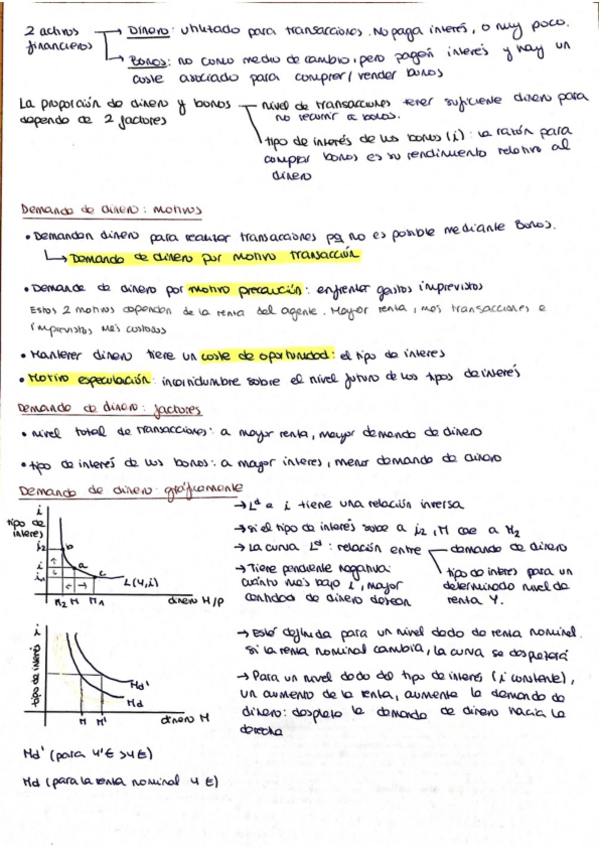 2 activos financieros → Dinero: utilizado para transacciones. No paga interés, o muy poco.
→ Bonos: no como medio de cambio, pero pagan interés y hay un
coste asociado para comprar/vender bonos
La proporción de dinero y bonos depende de 2 factores — nivel de transacciones tener suficiente dinero para
no recurrir a bonos.
tipo de interés de los bonos (i): la razón para
comprar bonos es su rendimiento relativo al
dinero
Demanda de dinero: motivos
• Demandan dinero para realizar transacciones pq no es posible mediante Bonos.
↳ Demanda de dinero por motivo transacción
• Demanda de dinero por motivo precaución: enfrentar gastos imprevistos
Estos 2 motivos dependen de la renta del agente. Mayor renta, mas transacciones e
imprevistos más costosos
• Mantener dinero tiene un coste de oportunidad: el tipo de interes
• Motivo especulación: incertidumbre sobre el nivel futuro de los tipos de interés
Demanda de dinero: factores
• nivel total de transacciones: a mayor renta, mayor demanda de dinero
• tipo de interés de los bonos: a mayor interes, menor demanda de dinero
Demanda de dinero graficamente
i
tipo de
interes
i2
b
i
a
i1
c
L(Y,i)
M2 M M1
dinero M/P
→ Lᵈ e i tiene una relación inversa
→ si el tipo de interés sube a i2, M cae a M2
→ La curva Lᵈ: relación entre — demanda de dinero
tipo de interes para un
determinado nivel de
renta Y.
→ Tiene pendiente negativa:
cuánto más bajo i, mayor
cantidad de dinero desean
tipo de interés i
Md'
Md
M M'
dinero M
→ Está definida para un nivel dado de renta nominal.
si la renta nominal cambia, la curva se desplazará
→ Para un nivel dado del tipo de interés (i constante),
un aumento de la renta, aumenta la demanda de
dinero: desplaza la demanda de dinero hacia la
derecha
Md' (para Y'€ > Y€)
Md (para la renta nominal Y €)